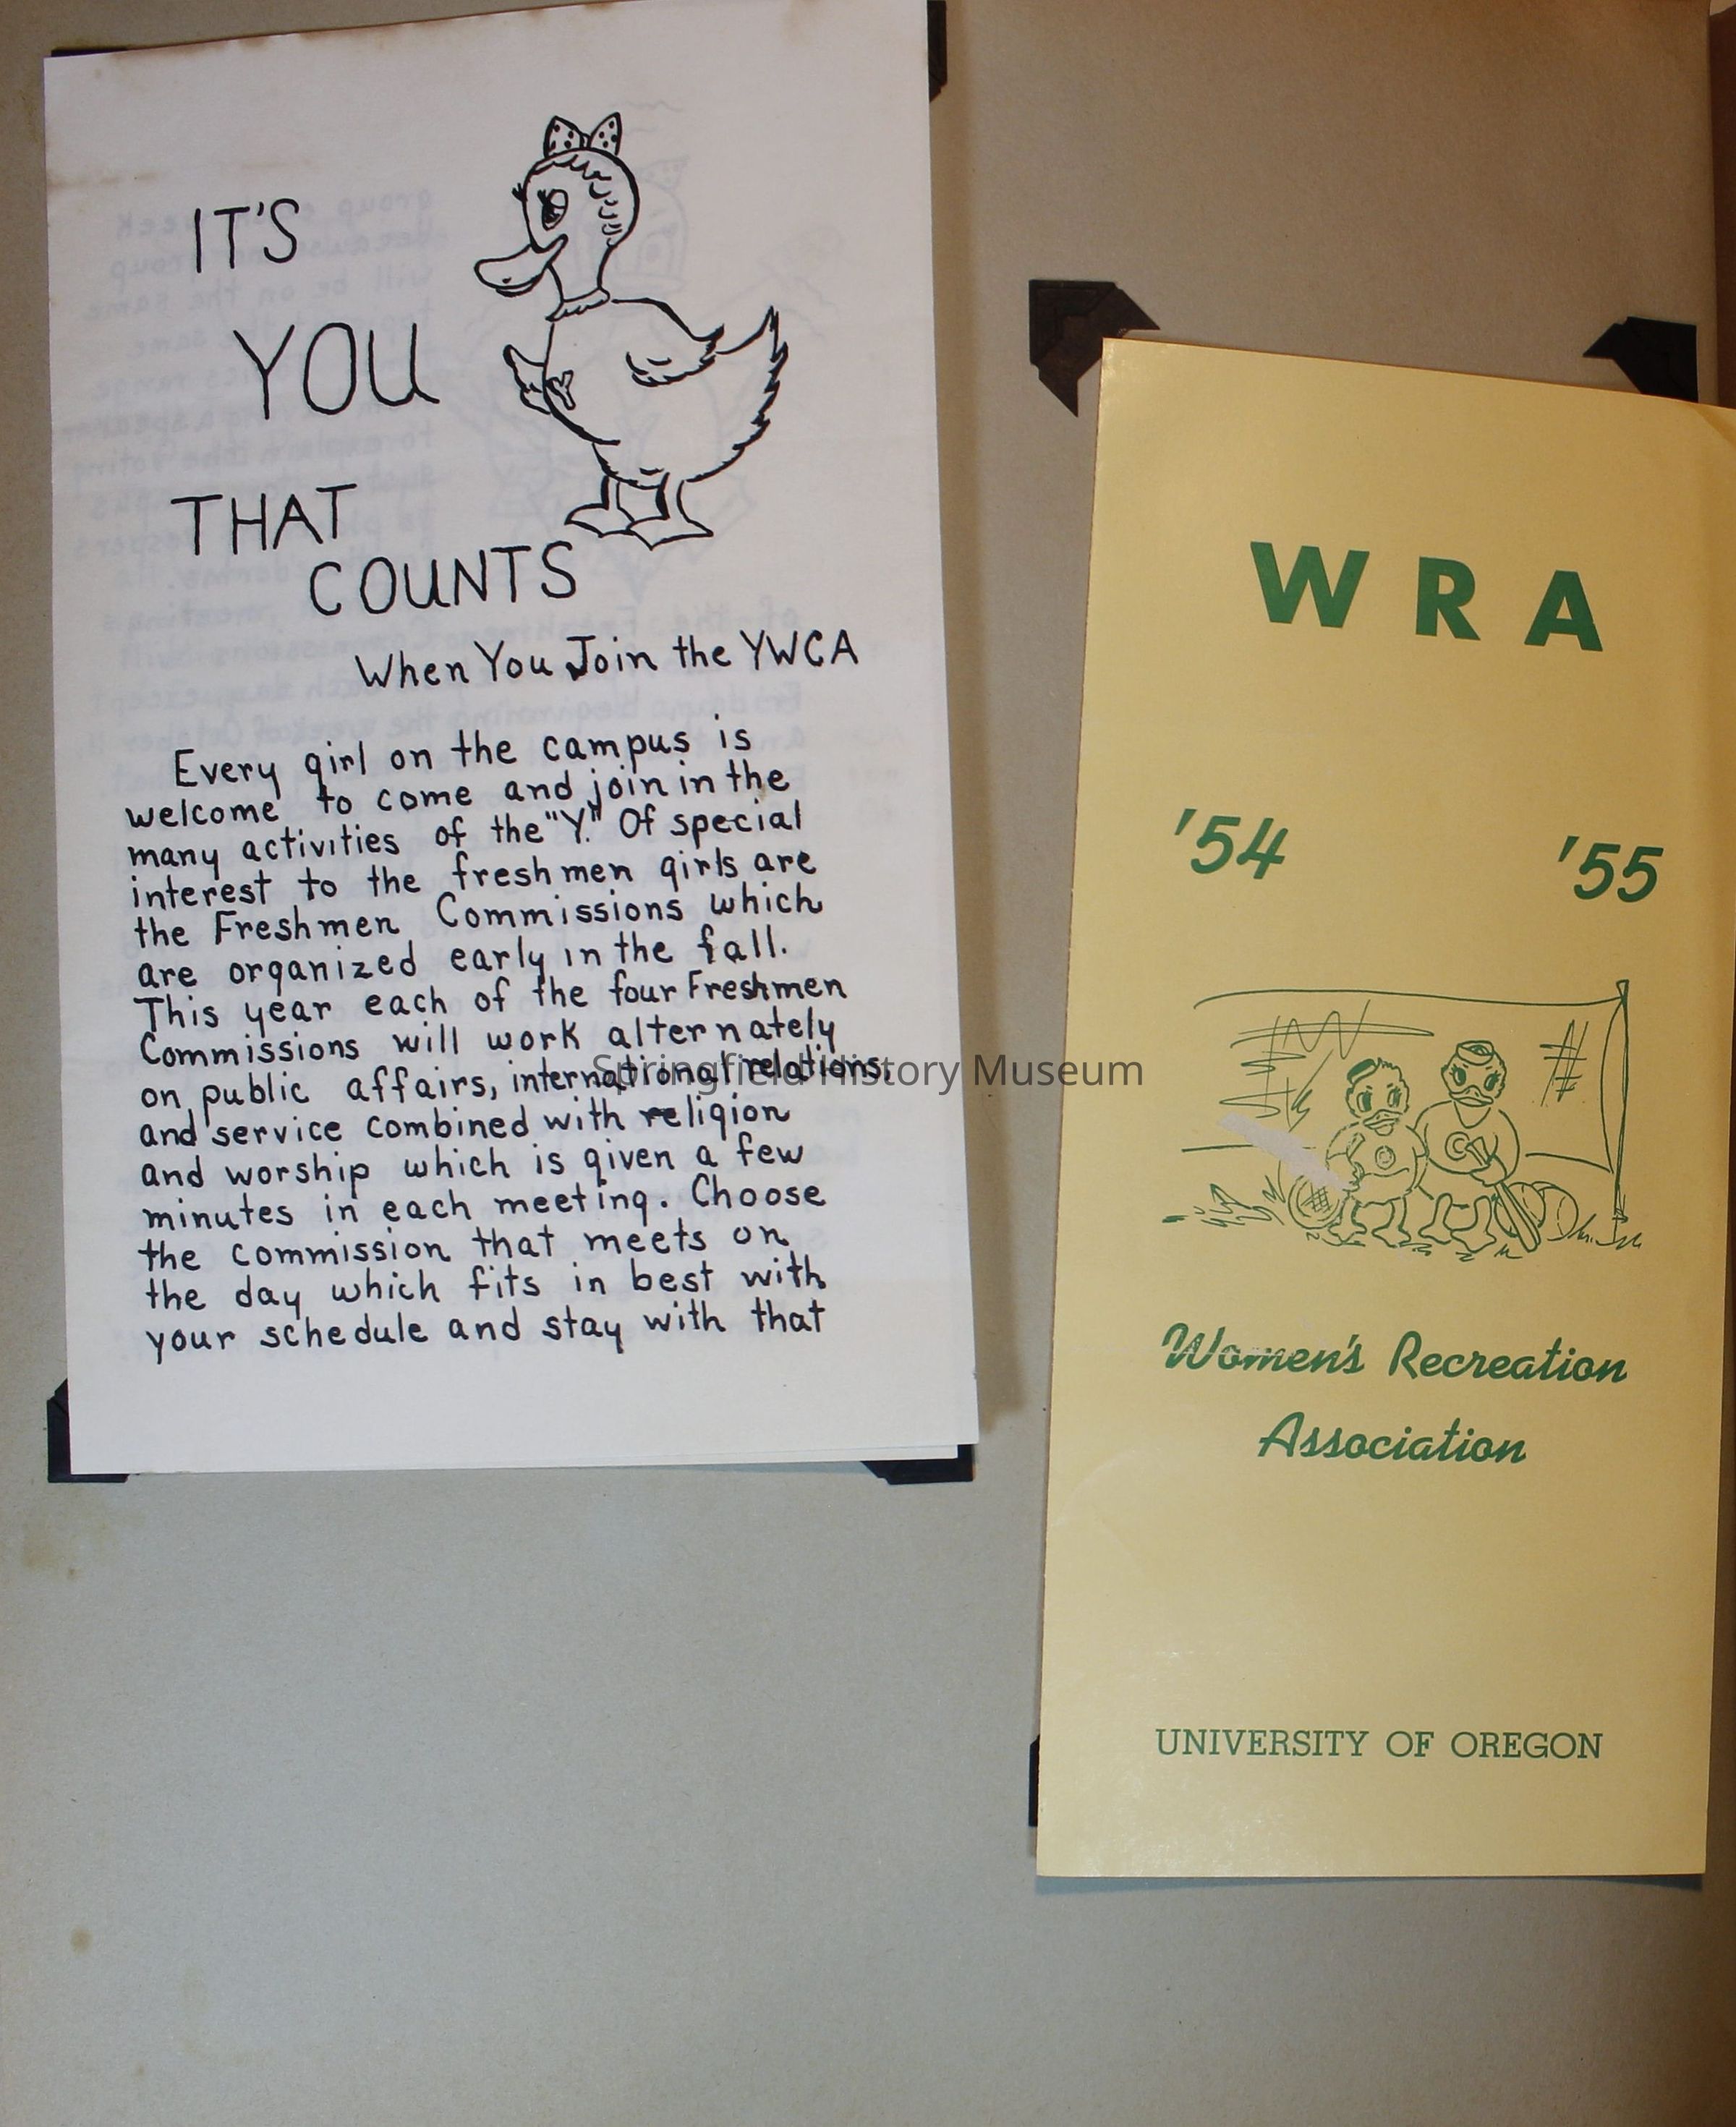 IT'S
YOU
THAT
COUNTS
When You Join the YWCA
Every girl on the campus is
welcome to come and join in the
many activities of the "Y." Of special
interest to the freshmen girls are
the Freshmen Commissions which
are organized early in the fall.
This year each of the four Freshmen
Commissions will work alternately
on public affairs, international relations,
and service combined with religion
and worship which is given a few
minutes in each meeting. Choose
the commission that meets on
the day which fits in best with
your schedule and stay with that
Springfield History Museum
W R A
'54 '55
Women's Recreation
Association
UNIVERSITY OF OREGON